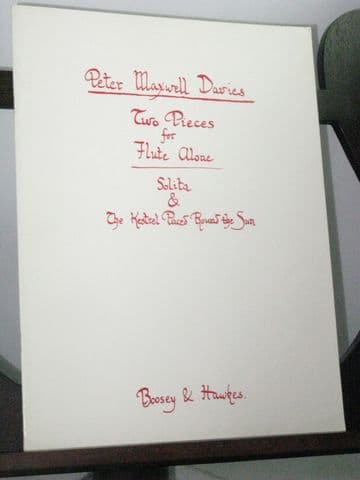 Peter Maxwell Davies
Two Pieces
for
Flute Alone
Solita
&
The Kestrel Paced Round the Sun
Boosey & Hawkes.